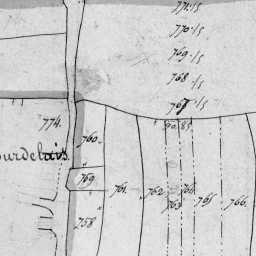 771./5
770./5
769./5
768./5
767./5
774.
760.
ourdelais.
769
761.
762.
763
764
765
766.
758.